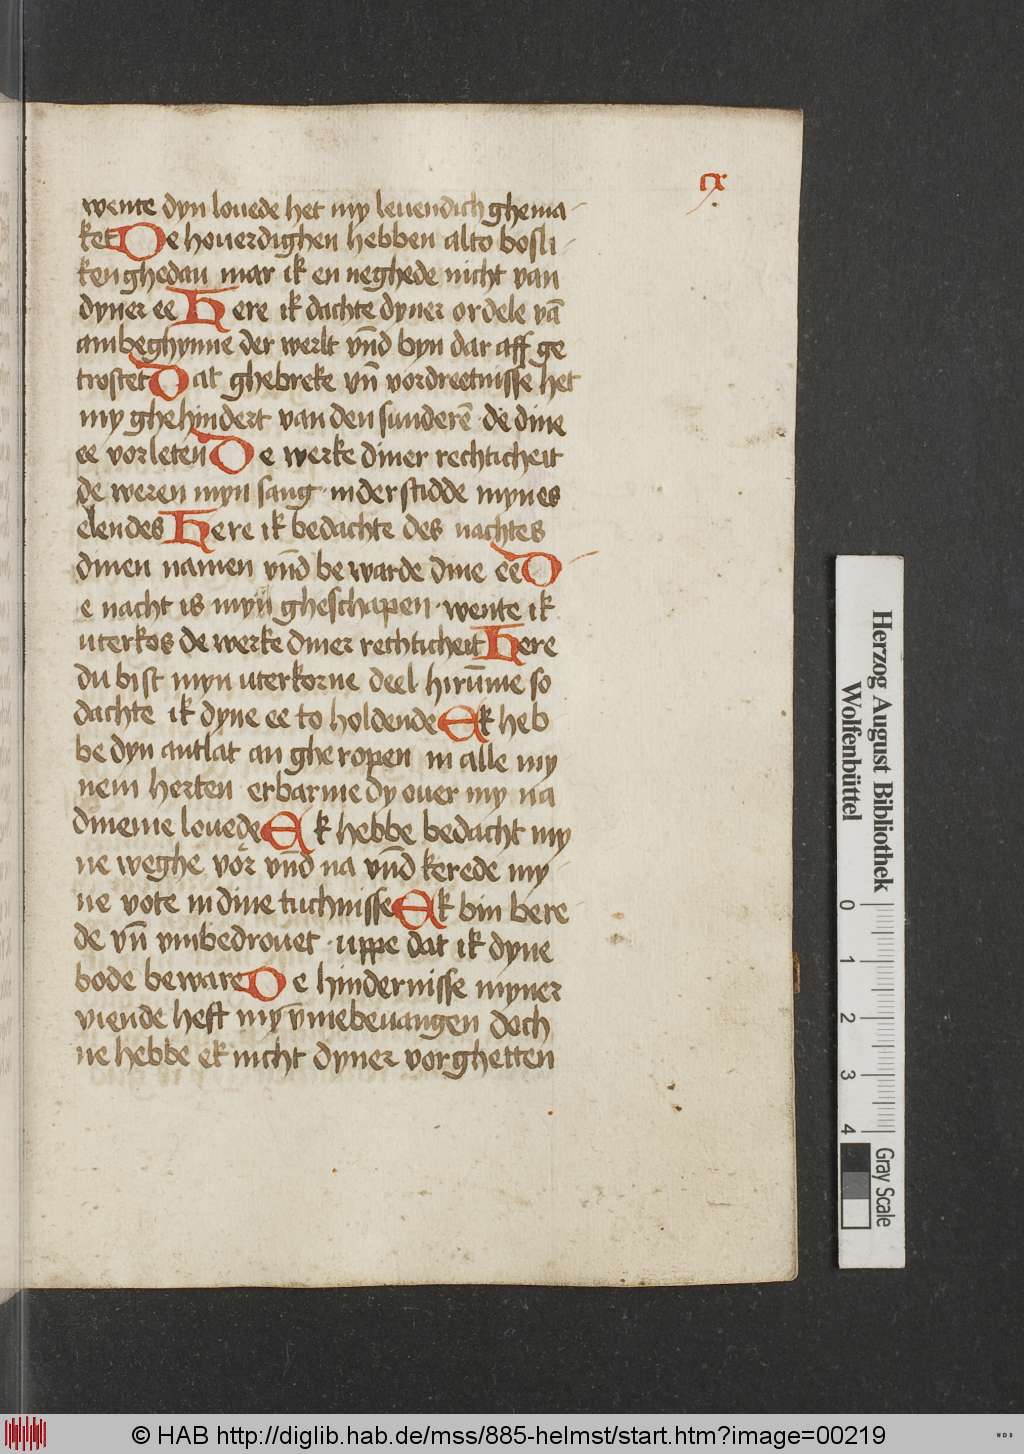 cx
wente dyn louede het my leuendich ghema-
ket De houerdighen hebben alto bosli-
ken ghedan mar ik en neghede nicht van
dyner ee Here ik dachte dyner ordele vā
ambeghynne der werlt vn̄d byn dar aff ge
trostet Dat ghebreke vn̄ vordreetnisse het
my ghehindert van den sunderē de dine
ee vorleten De werke diner rechticheit
de weren myn sang in der stidde mynes
elendes Here ik bedachte des nachtes
dinen namen vn̄d bewarde dine ee D
e nacht is myn gheschapen wente ik
uterkos de werke diner rechticheit Here
du bist myn uterkorne deel hirūme so
dachte ik dyne ee to holdende Ek heb
be dyn antlat an gheropen in alle my
nem herten erbarme dy ouer my na
dineme louede Ek hebbe bedacht my
ne weghe vor vn̄d na vn̄d kerede my-
ne vote in dine tuchnisse Ek bin bere
de vn̄ vmbedrouet uppe dat ik dyne
bode beware De hindernisse myner
viende heft my v̄mebeuangen doch
ne hebbe ek nicht dyner vorghetten
Herzog August Bibliothek
Wolfenbüttel
0 1 2 3 4
Gray Scale
© HAB http://diglib.hab.de/mss/885-helmst/start.htm?image=00219
WDB